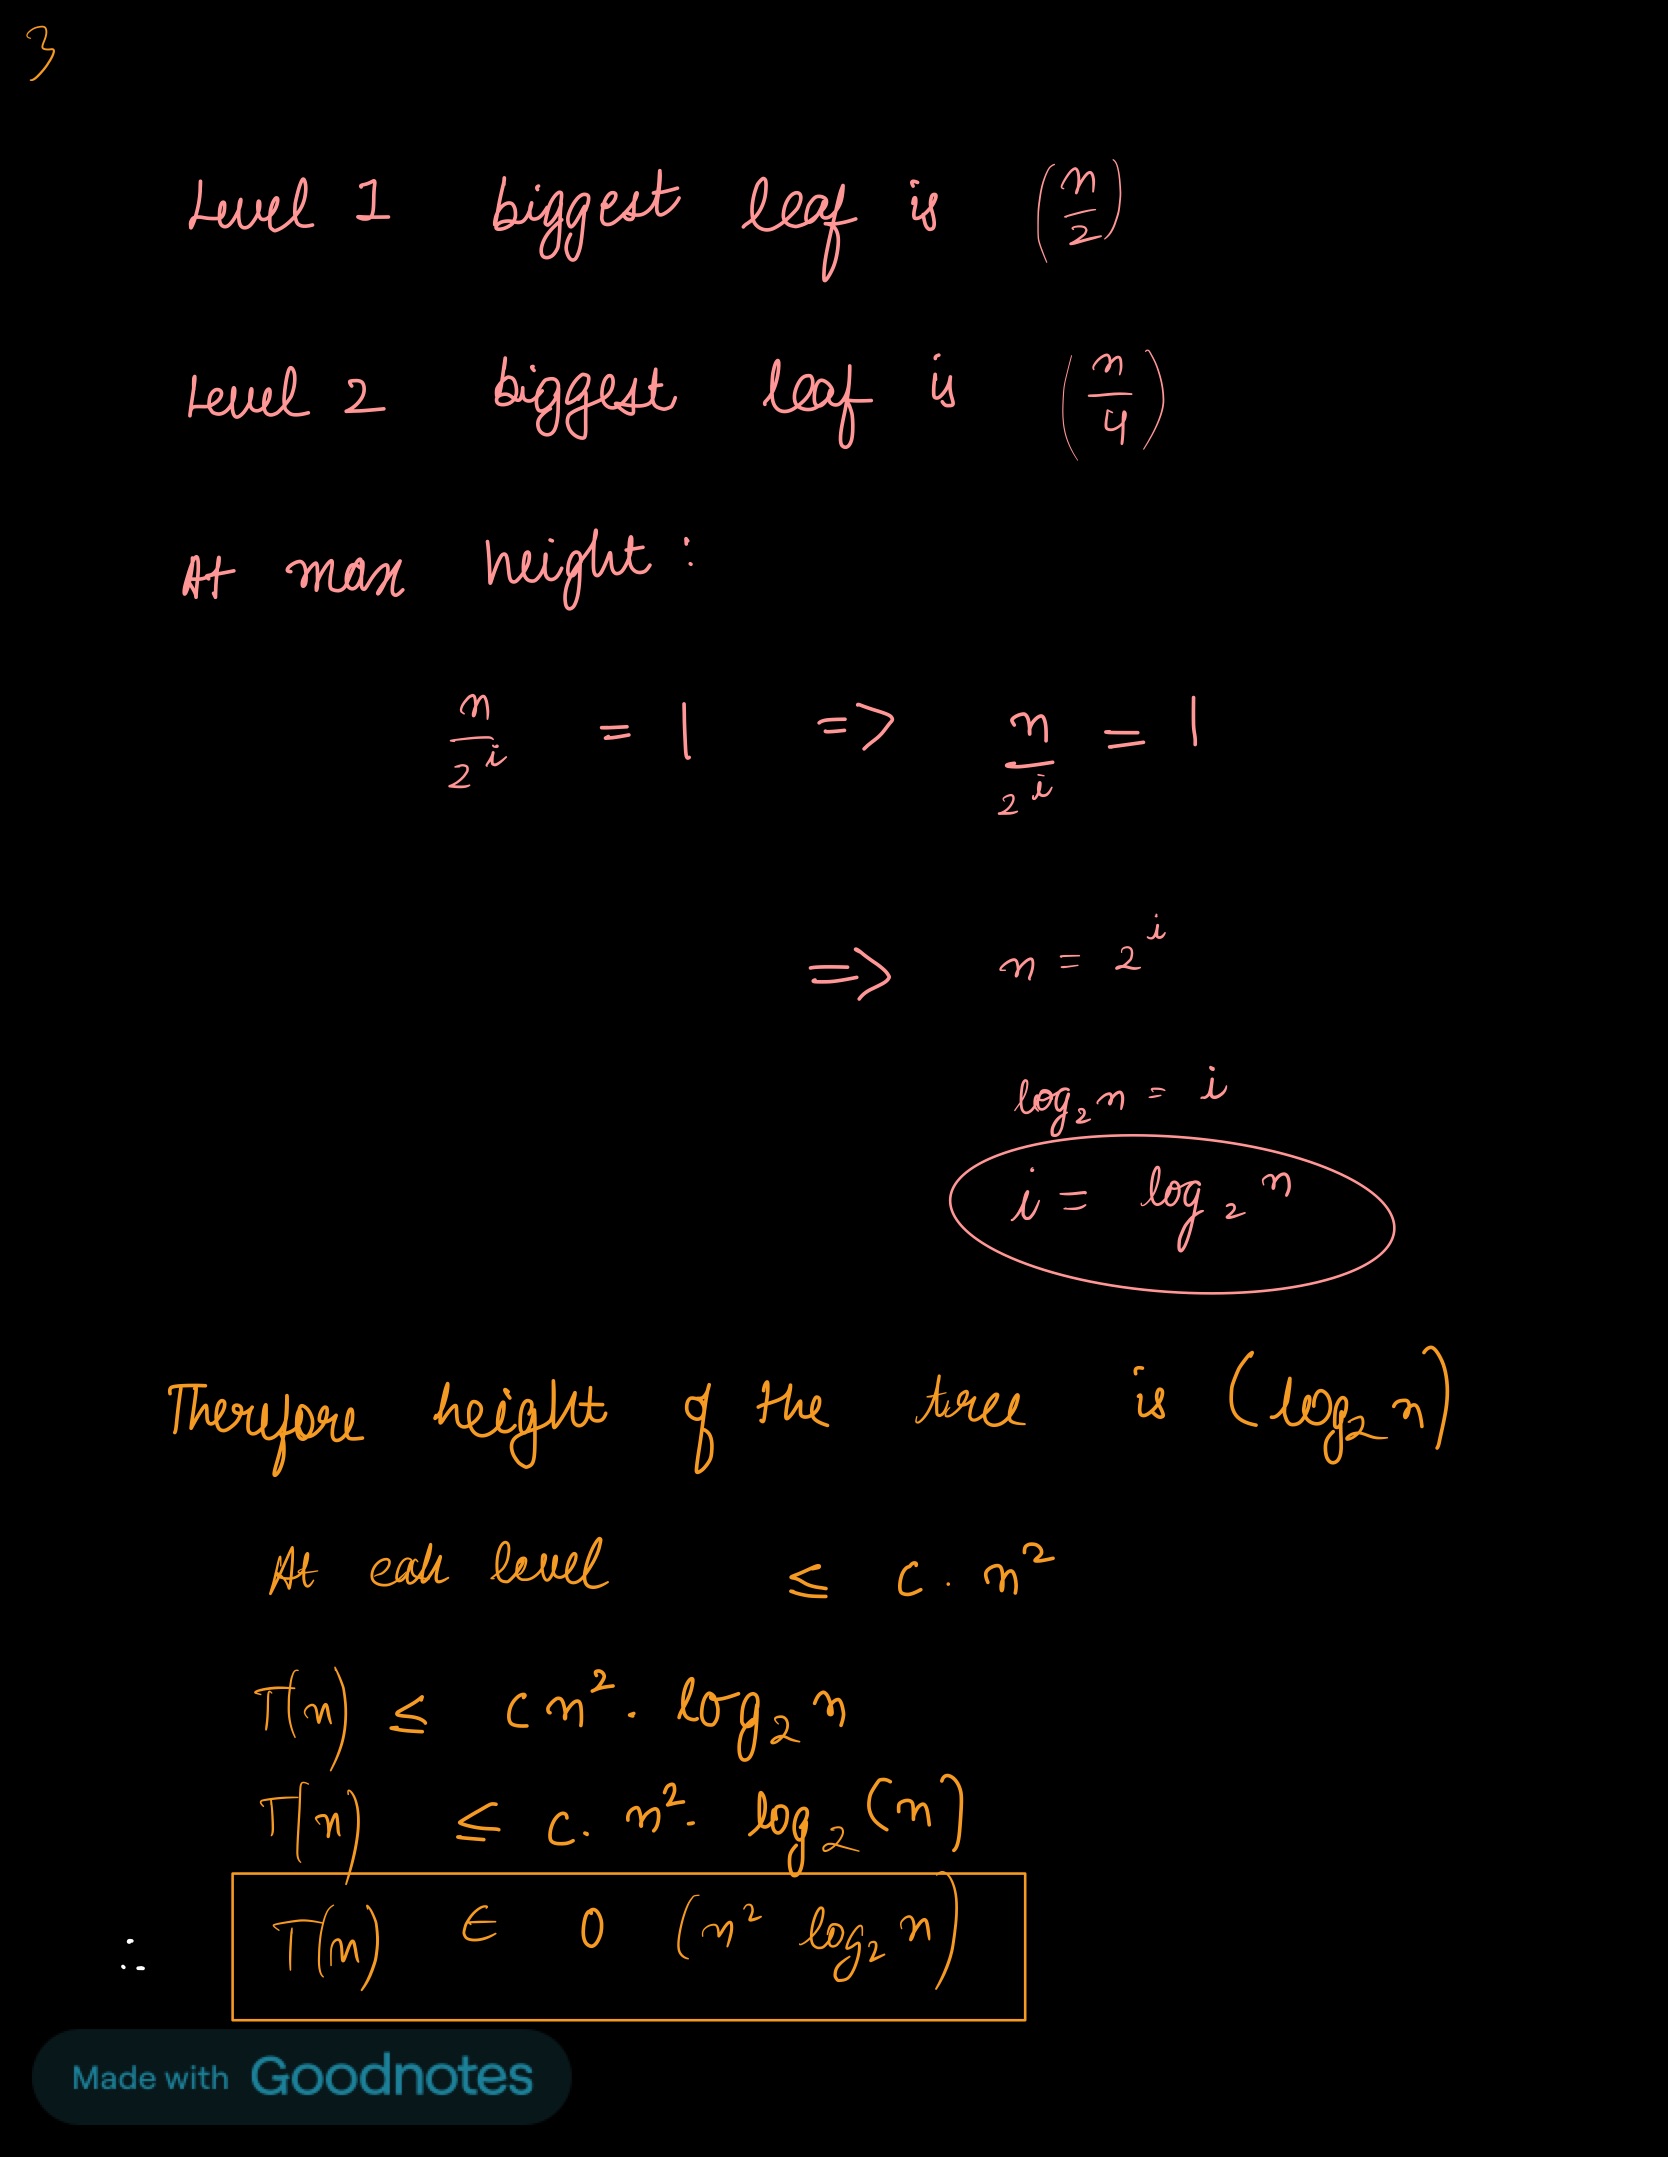 3
Level 1 biggest leaf is (n/2)
Level 2 biggest leaf is (n/4)
At max height :
n/2^i = 1 => n/2^i = 1
=> n = 2^i
log₂n = i
i = log₂ n
Therefore height of the tree is (log₂ n)
At each level ≤ c . n²
T(n) ≤ c n² . log₂ n
T(n) ≤ c . n² . log₂ (n)
∴ T(n) ∈ O (n² log₂ n)
Made with Goodnotes